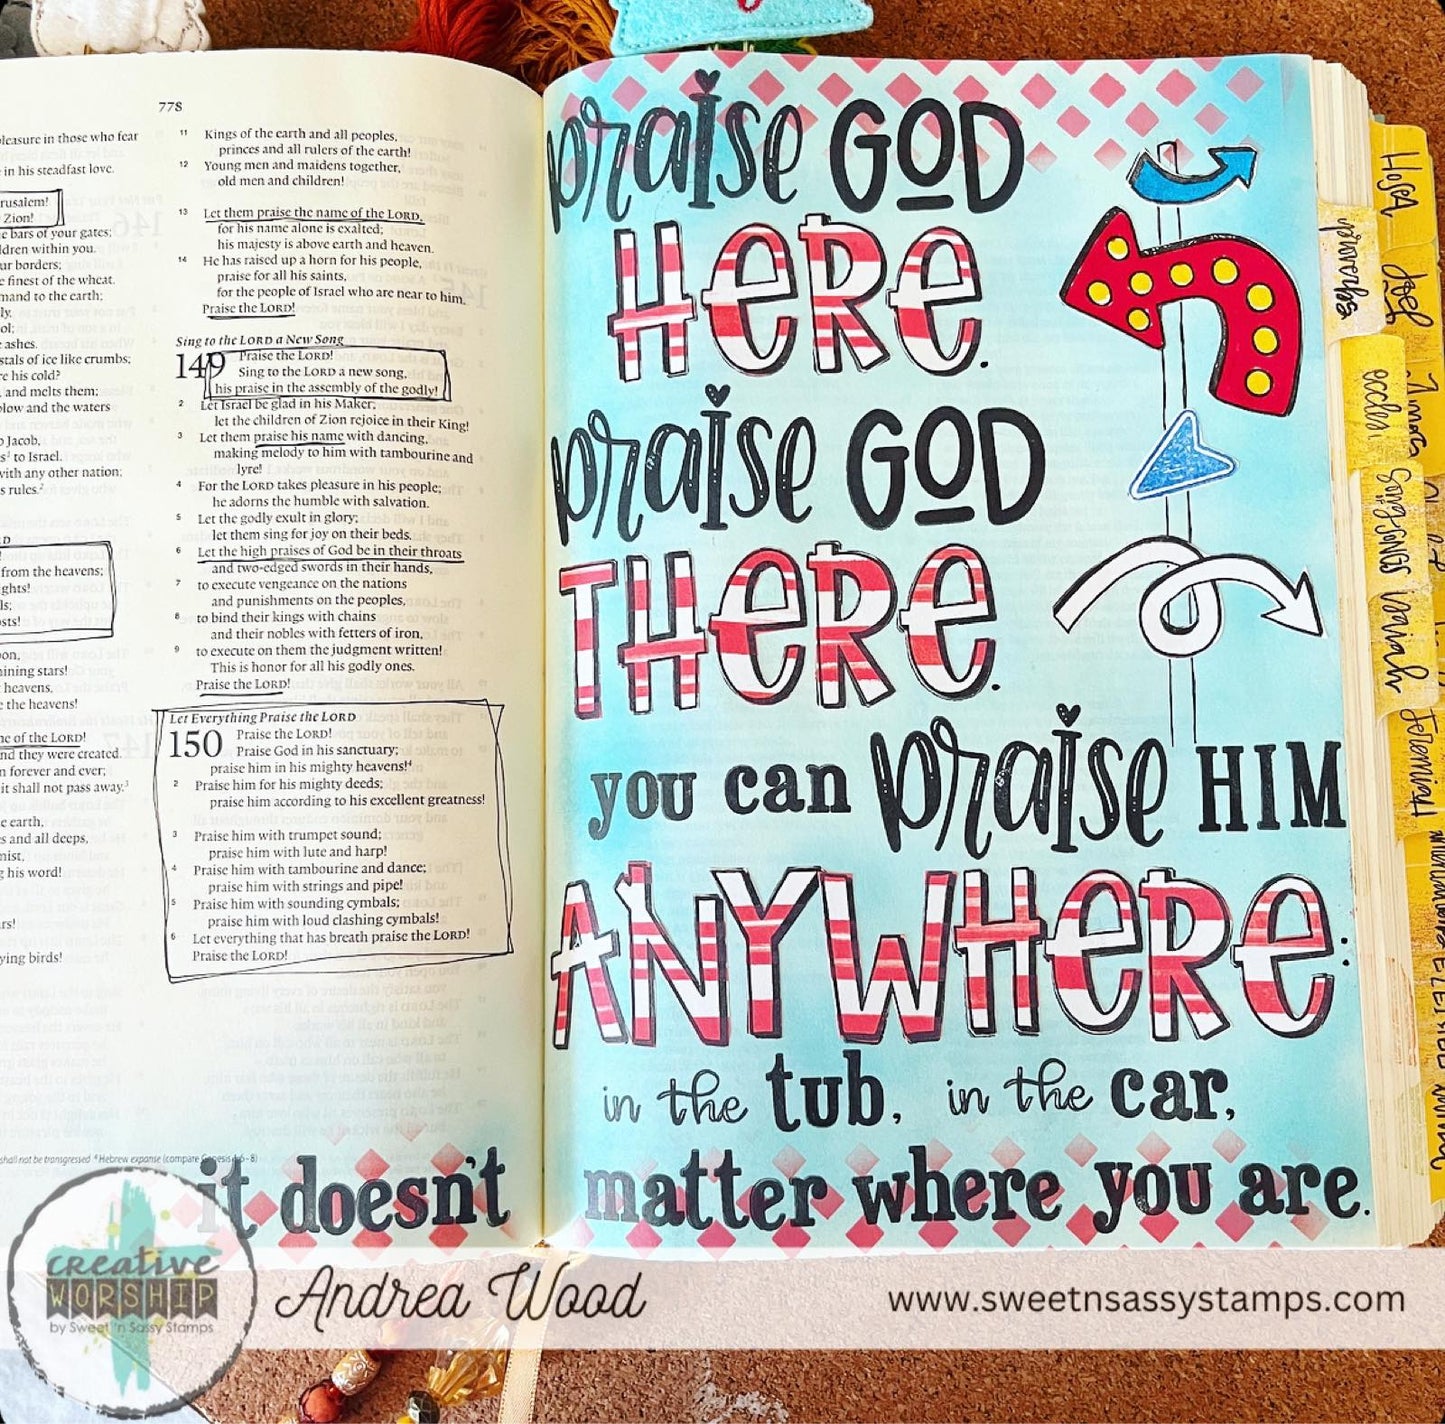 778
pleasure in those who fear
in his steadfast love.
rusalem!
Zion!
e bars of your gates;
ldren within you.
ur borders;
e finest of the wheat.
mand to the earth;
ly.
ol;
e ashes.
stals of ice like crumbs;
re his cold?
, and melts them;
blow and the waters
o Jacob,
s¹ to Israel.
with any other nation;
s rules.²
from the heavens;
ights!
ls;
osts!
oon,
hining stars!
heavens,
e the heavens!
me of the LORD!
nd they were created.
n forever and ever;
it shall not pass away.³
e earth,
es and all deeps,
mist,
g his word!
ars!
ying birds!
11 Kings of the earth and all peoples,
princes and all rulers of the earth!
12 Young men and maidens together,
old men and children!
13 Let them praise the name of the LORD,
for his name alone is exalted;
his majesty is above earth and heaven.
14 He has raised up a horn for his people,
praise for all his saints,
for the people of Israel who are near to him.
Praise the LORD!
Sing to the LORD a New Song
149 Praise the LORD!
Sing to the LORD a new song,
his praise in the assembly of the godly!
2 Let Israel be glad in his Maker;
let the children of Zion rejoice in their King!
3 Let them praise his name with dancing,
making melody to him with tambourine and
lyre!
4 For the LORD takes pleasure in his people;
he adorns the humble with salvation.
5 Let the godly exult in glory;
let them sing for joy on their beds.
6 Let the high praises of God be in their throats
and two-edged swords in their hands,
7 to execute vengeance on the nations
and punishments on the peoples,
8 to bind their kings with chains
and their nobles with fetters of iron,
9 to execute on them the judgment written!
This is honor for all his godly ones.
Praise the LORD!
Let Everything Praise the LORD
150 Praise the LORD!
Praise God in his sanctuary;
praise him in his mighty heavens!⁴
2 Praise him for his mighty deeds;
praise him according to his excellent greatness!
3 Praise him with trumpet sound;
praise him with lute and harp!
4 Praise him with tambourine and dance;
praise him with strings and pipe!
5 Praise him with sounding cymbals;
praise him with loud clashing cymbals!
6 Let everything that has breath praise the LORD!
Praise the LORD!
shall not be transgressed ⁴ Hebrew expanse (compare Genesis 1:6-8)
praise GOD
HERE.
praise GOD
THERE.
you can praise HIM
ANYWHERE:
in the tub, in the car,
it doesn't matter where you are.
Hosea
proverbs
Joel
eccles.
Song of songs
Isaiah
Jeremiah
creative
WORSHIP
by Sweet 'n Sassy Stamps
Andrea Wood
www.sweetnsassystamps.com